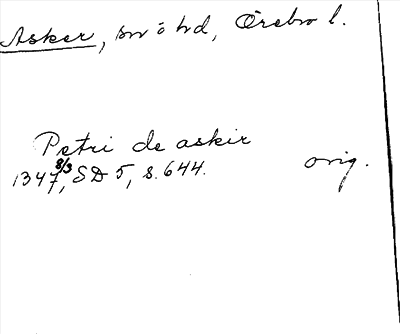 Asker, sn ö hd, Örebro l.
Petri de askir
1347 8/3, SD 5, s. 644. orig.